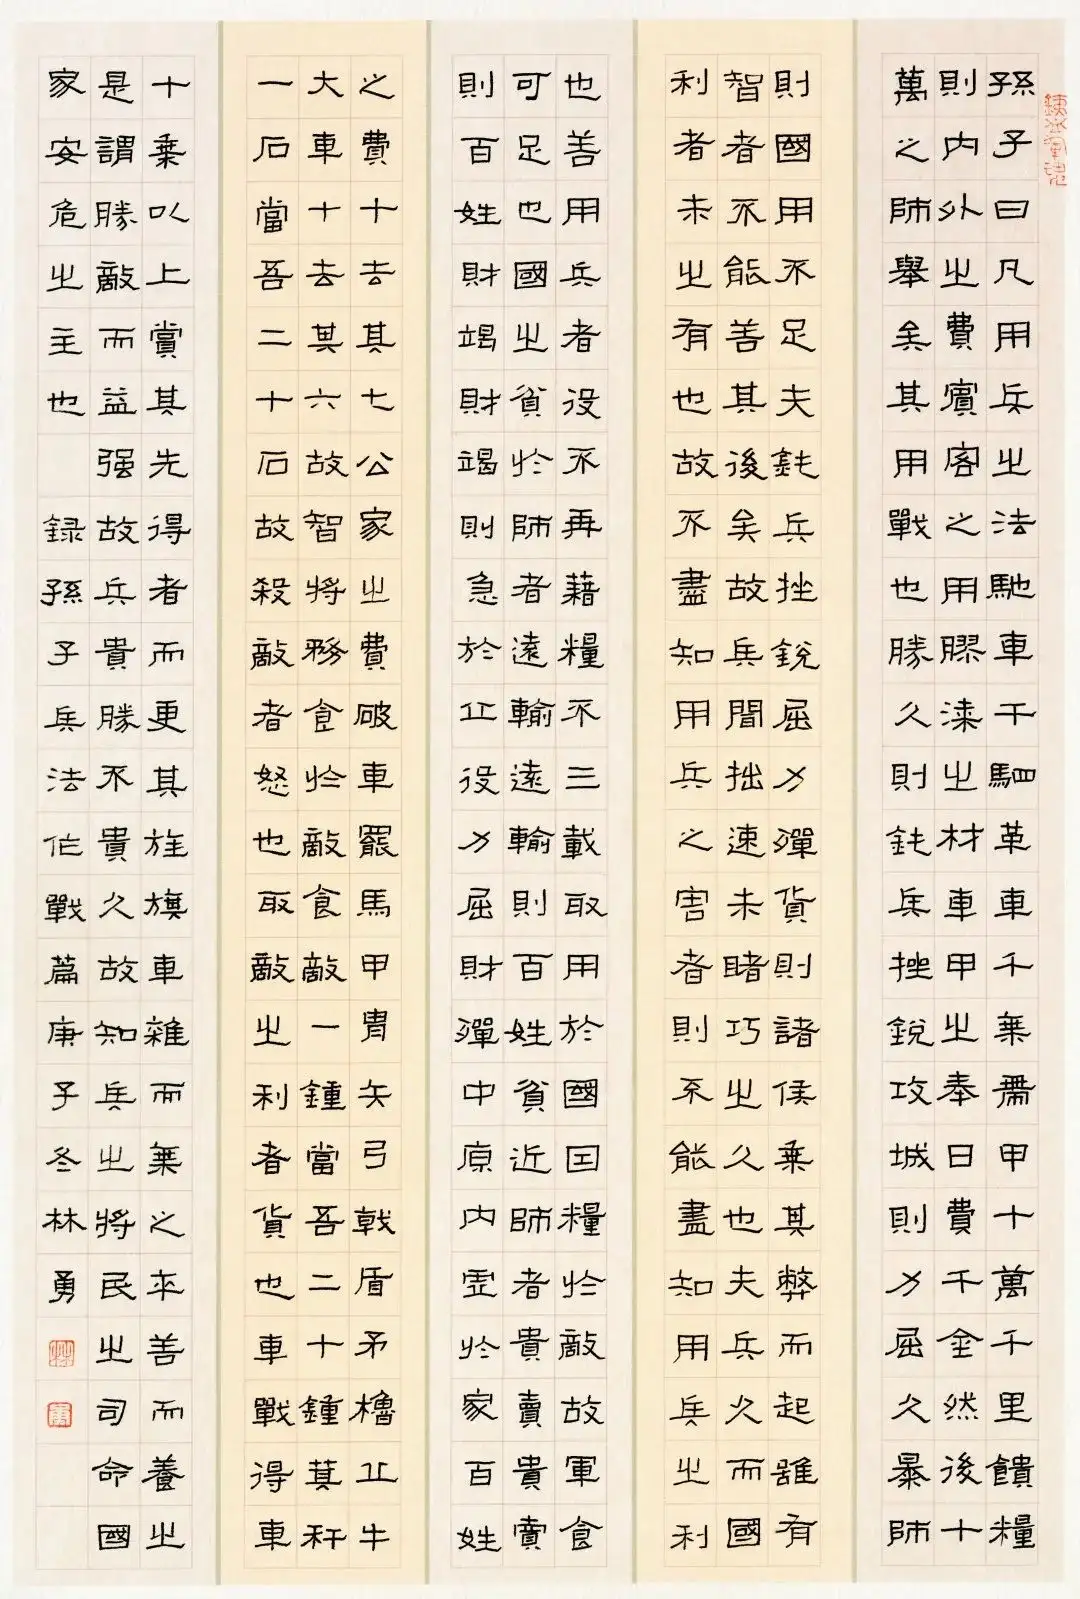 孫子曰凡用兵之法馳車千駟革車千乘帶甲十萬千里饋糧
則內外之費賓客之用膠漆之材車甲之奉日費千金然後十
萬之師舉矣其用戰也勝久則鈍兵挫銳攻城則力屈久暴師
則國用不足夫鈍兵挫銳屈力殫貨則諸侯乘其弊而起雖有
智者不能善其後矣故兵聞拙速未睹巧之久也夫兵久而國
利者未之有也故不盡知用兵之害者則不能盡知用兵之利
也善用兵者役不再藉糧不三載取用於國因糧於敵故軍食
可足也國之貧於師者遠輸遠輸則百姓貧近師者貴賣貴賣
則百姓財竭財竭則急於丘役力屈財殫中原內虛於家百姓
之費十去其七公家之費破車罷馬甲冑矢弓戟盾矛櫓丘牛
大車十去其六故智將務食於敵食敵一鍾當吾二十鍾萁秆
一石當吾二十石故殺敵者怒也取敵之利者貨也車戰得車
十乘以上賞其先得者而更其旌旗車雜而乘之卒善而養之
是謂勝敵而益强故兵貴勝不貴久故知兵之將民之司命國
家安危之主也 錄孫子兵法作戰篇庚子冬林勇
林
勇